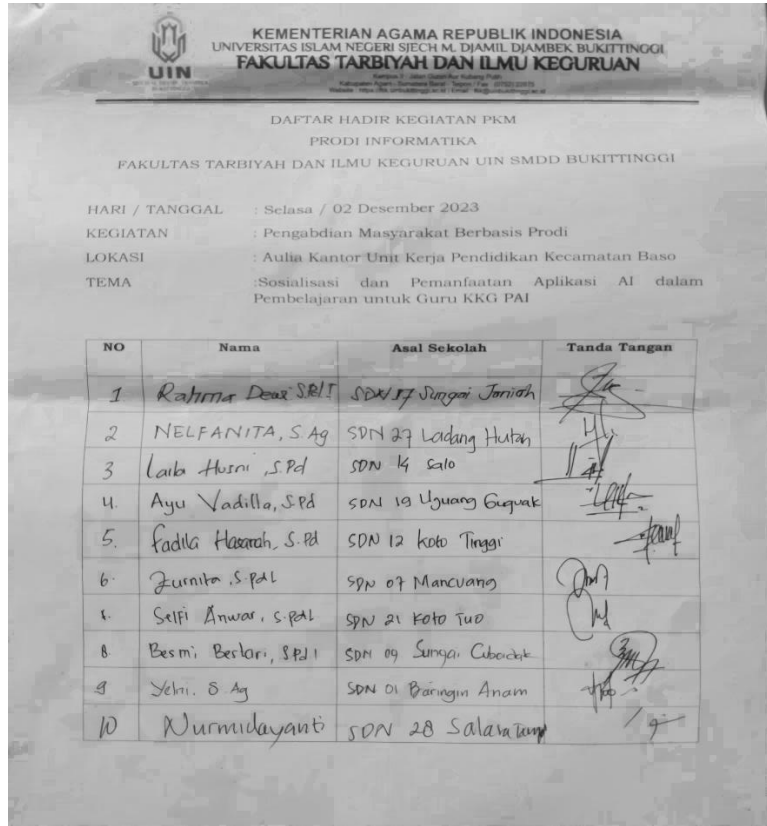 UIN
KEMENTERIAN AGAMA REPUBLIK INDONESIA
UNIVERSITAS ISLAM NEGERI SJECH M. DJAMIL DJAMBEK BUKITTINGGI
FAKULTAS TARBIYAH DAN ILMU KEGURUAN
DAFTAR HADIR KEGIATAN PKM
PRODI INFORMATIKA
FAKULTAS TARBIYAH DAN ILMU KEGURUAN UIN SMDD BUKITTINGGI
HARI / TANGGAL : Selasa / 02 Desember 2023
KEGIATAN : Pengabdian Masyarakat Berbasis Prodi
LOKASI : Aulia Kantor Unit Kerja Pendidikan Kecamatan Baso
TEMA :Sosialisasi dan Pemanfaatan Aplikasi AI dalam
Pembelajaran untuk Guru KKG PAI
NO Nama Asal Sekolah Tanda Tangan
1 Rahma Dewi SDN 17 Sungai Janiah
2 NELFANITA, S.Ag SDN 27 Ladang Hutan
3 Laila Husni, S.Pd SDN 14 Salo
4. Ayu Vadilla, S.Pd SDN 19 Guguak
5. Fadila Hasanah, S.Pd SDN 12 Koto Tinggi
6. Zurnita, S.PdI SDN 07 Mancuang
Selfi Anwar, S.PdI SDN 21 Koto Tuo
8. Besmi Bestari, S.Pd I SDN 09 Sungai Cubadak
9 Yelni. S Ag SDN 01 Baringin Anam
10 Nurmidayanti SDN 28